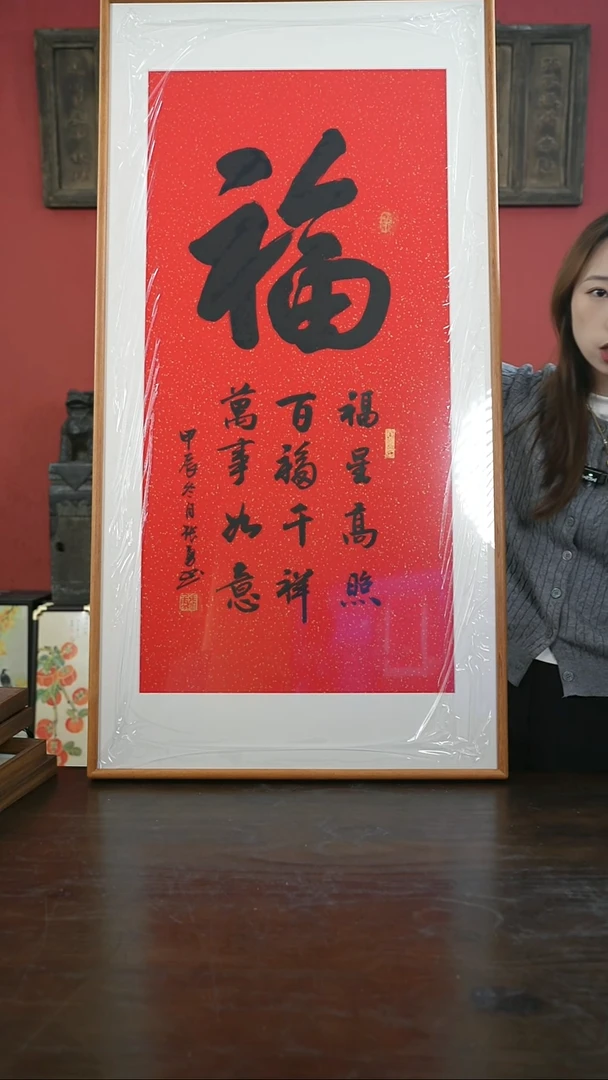 福
福星高照
百福千祥
萬事如意
甲辰冬月張